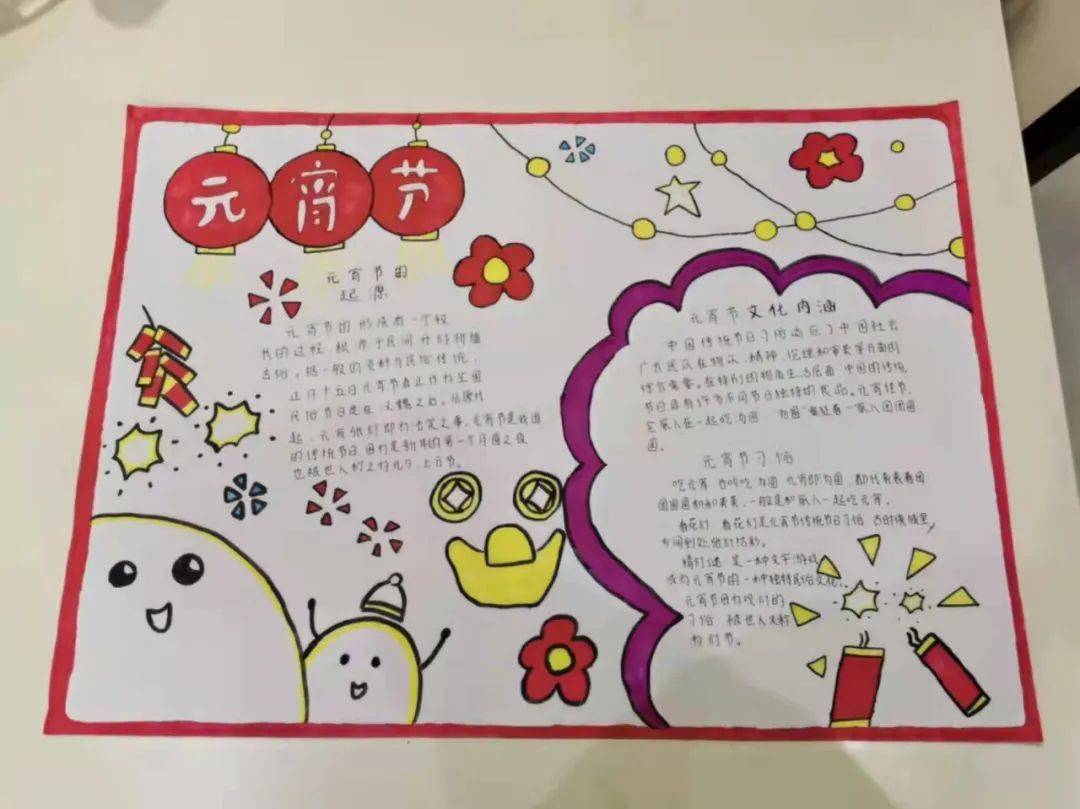 元宵节
元宵节的
起源
元宵节的形成有一个较
长的过程,根源于民间开灯祈福
古俗。据一般的资料与民俗传说,
正月十五日元宵节真正作为全国
民俗节日是在 之后。从唐代
起,元宵张灯即为法定之事。元宵节是我国
的传统节日因为是新年的第一个月圆之夜
也被世人称之为元夕,上元节。
元宵节文化内涵
中国传统节日习俗适应了中国社会
广大民众在物欲、精神、伦理和审美等方面的
综合需要。在特别的物质生活层面 中国的传统
节日具有许多不同节日独特的食品。元宵佳节,
全家人在一起吃汤圆 汤圆 象征着一家人团团圆
圆。
元宵节习俗
吃元宵 也叫吃汤圆 元宵即汤圆,都代表着团
团圆圆和和美美,一般是和家人一起吃元宵。
看花灯 看花灯是元宵节传统节日习俗 古时候城里
乡间到处张灯结彩。
猜灯谜 是一种文字游戏
成为元宵节的一种独特民俗文化,
元宵节因为观灯的
习俗 被世人又称
为灯节。